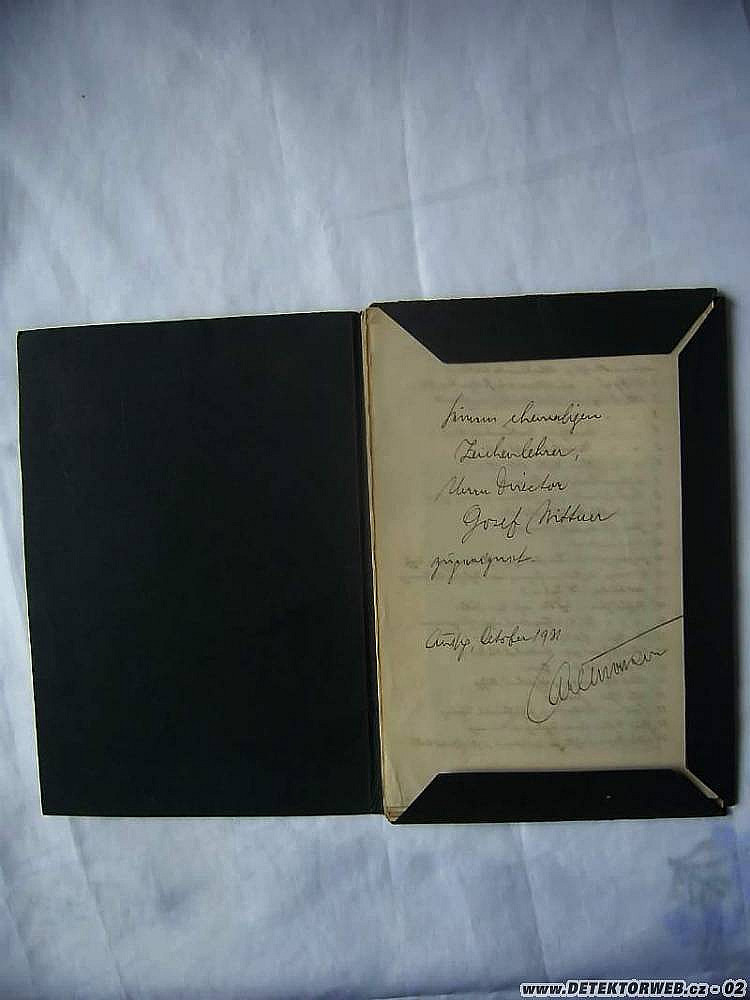 seinem ehemaligen
Zeichenlehrer,
Herrn Director
Josef Wittner
zugeeignet.
Aussig, October 1921
www.DETEKTORWEB.cz - 02